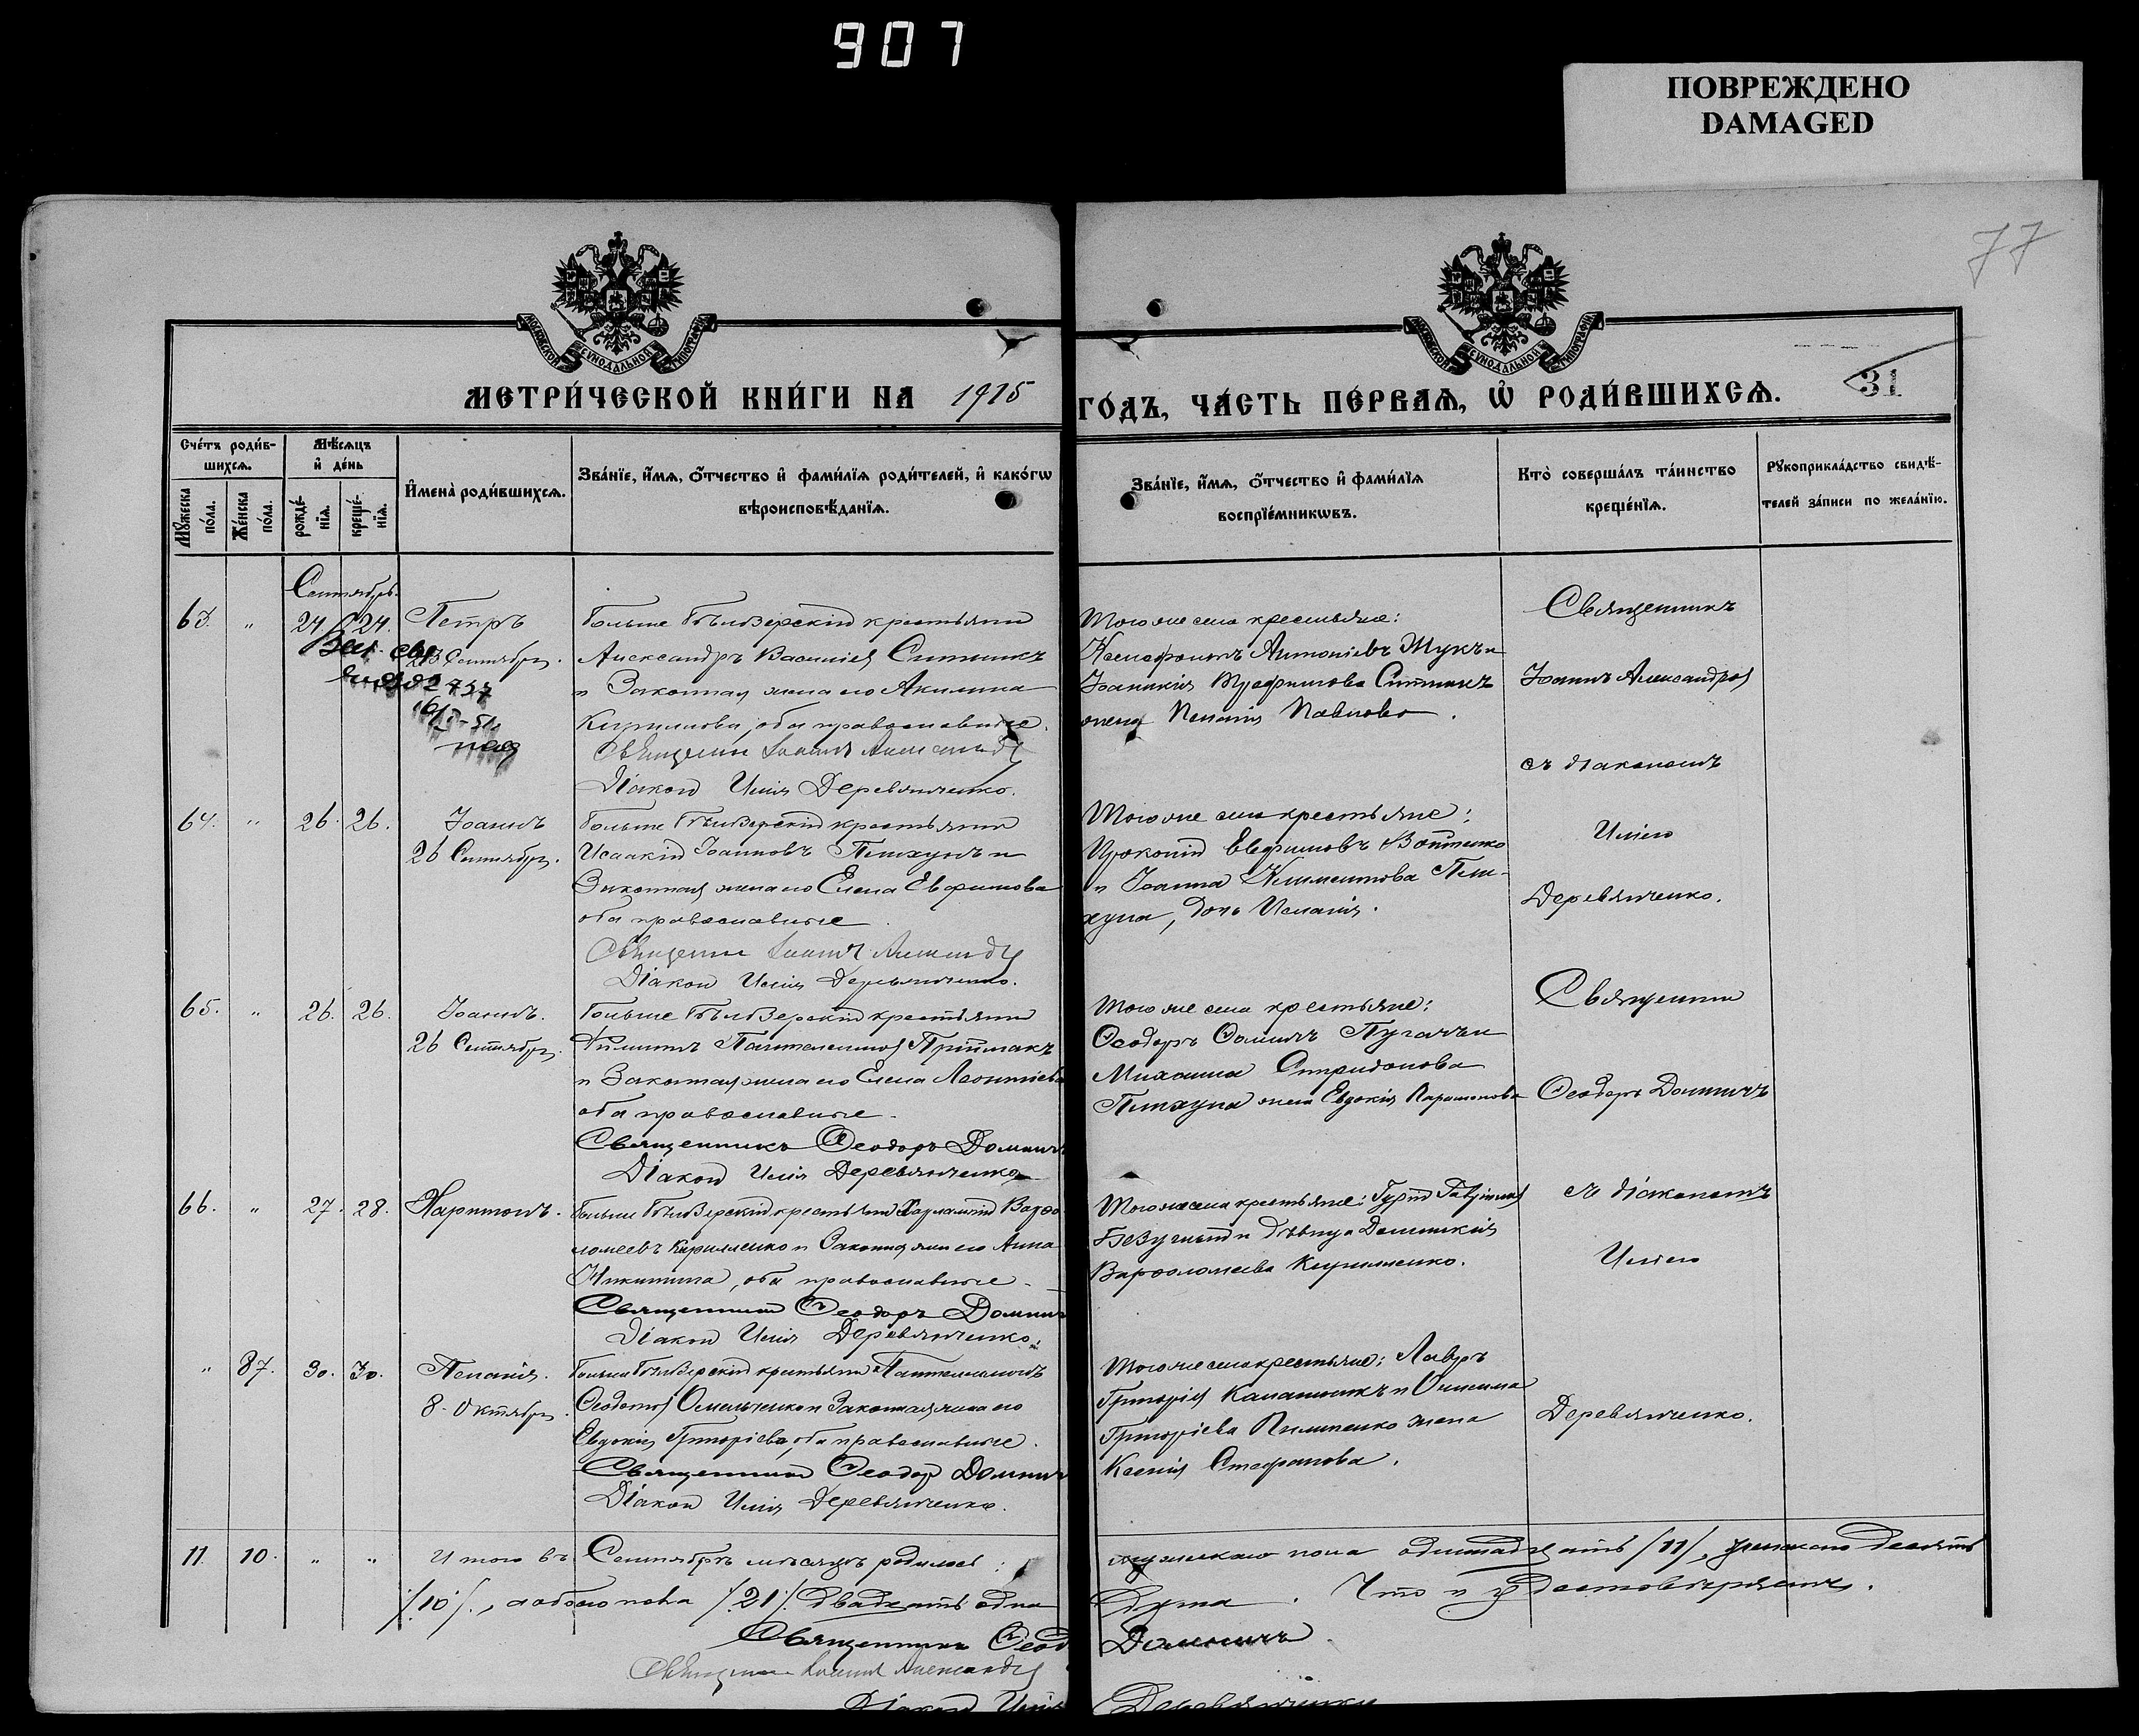 907
ПОВРЕЖДЕНО
DAMAGED
77
МОСКОВСКОЙ СѴНОДАЛЬНОЙ ТИПОГРАФІИ
МОСКОВСКОЙ СѴНОДАЛЬНОЙ ТИПОГРАФІИ
МЕТРИ́ЧЕСКОЙ КНИ́ГИ НА 1915 ГО́ДЪ, ЧА́СТЬ ПЕ́РВАѦ, Ѡ РОДИ́ВШИХСѦ.
31
Сче́тъ роди́в-
шихсѧ.
Мѣ́сѧцъ
и҆ де́нь
Мꙋ́жеска
по́ла.
Же́нска
по́ла.
рожде́-
нїѧ.
креще́-
нїѧ.
И҆мена̀ роди́вшихсѧ.
Зва́нїе, и҆́мѧ, ѻ҆́тчество и҆ фами́лїѧ роди́телей, и҆ како́гѡ
вѣроисповѣ́данїѧ.
Зва́нїе, и҆́мѧ, ѻ҆́тчество и҆ фами́лїѧ
воспрїе́мникѡвъ.
Кто̀ соверша́лъ та́инство
креще́нїѧ.
Рꙋкоприкла́дство свидѣ́-
телей за́писи по жела́нїю.
Сентябрь
63. " 24. 24. Петръ
Больше Бѣлозерскій крестьянинъ
Александръ Василіев Ситникъ
и Законная жена его Акилина
Кириллова, оба православные.
Священникъ Іоаннъ Александров
Діакон Илія Деревянченко.
Того же села крестьяне:
Ксенофонтъ Антоніевъ Жукъ и
Іоанникія Трофимова Ситникъ
жена Пелагія Павлова.
Священникъ
Іоаннъ Александров
съ діакономъ
64. " 26. 26. Іоаннъ
26 Сентября.
Больше Бѣлозерскій крестьянинъ
Исаакій Іоанновъ Пелихунъ и
Законная жена его Елена Евфимова
оба православные
Священникъ Іоаннъ Александров
Діакон Илія Деревянченко.
Того же села крестьяне:
Прокопій Евфимовъ Войтенко
и Іоанна Климентова Пели-
дочь
Иліею
Деревянченко.
65. " 26. 26. Іоаннъ.
26 Сентября.
Больше Бѣлозерскій крестьянинъ
Филиппъ Пантелеимов Приймакъ
и Законная жена его Елена Леонтіева
оба православные.
Священникъ Ѳеодоръ Домнич
Діакон Илія Деревянченко
Того же села крестьяне:
Ѳеодоръ Ѳоминъ Пугачъ и
Михаила Спиридонова
жена Евдокія Парамонова
Священникъ
Ѳеодоръ Домничъ
66. " 27. 28. Харитонъ.
Больше Бѣлозерскій крестьянинъ Харлампій Варѳо-
ломеевъ Кириленко и Законная жена его Анна
Никитина, оба православные.
Священникъ Ѳеодоръ Домнич
Діакон Илія Деревянченко.
Того же села крестьяне: Гурій Гавріилов
Безуглый и дѣвица Домникія
Варѳоломеева Кириленко.
съ діакономъ
Иліею
" 87. 30. 30. Пелагія.
8. Октября.
Больше Бѣлозерскій крестьянинъ Пантелеимонъ
Ѳедотов Омельченко и Законная жена его
Евдокія Григоріева, оба православные.
Священникъ Ѳеодор Домнич
Діакон Илія Деревянченко.
Того же села крестьяне: Лавръ
Григоріев Калашникъ и
Григоріева Пилипенко жена
Ксенія Стефанова.
Деревянченко.
11. 10. " " Итого въ Сентябрѣ мѣсяцѣ родилось: мужескаго пола одиннадцать /11/, женскаго десять
/10/., обоего пола /21/ двадцать одна душа. Что и удостовѣряемъ.
Священникъ Ѳеод Домничъ
Священникъ Іоаннъ Александров
Діакон Илія Деревянченко